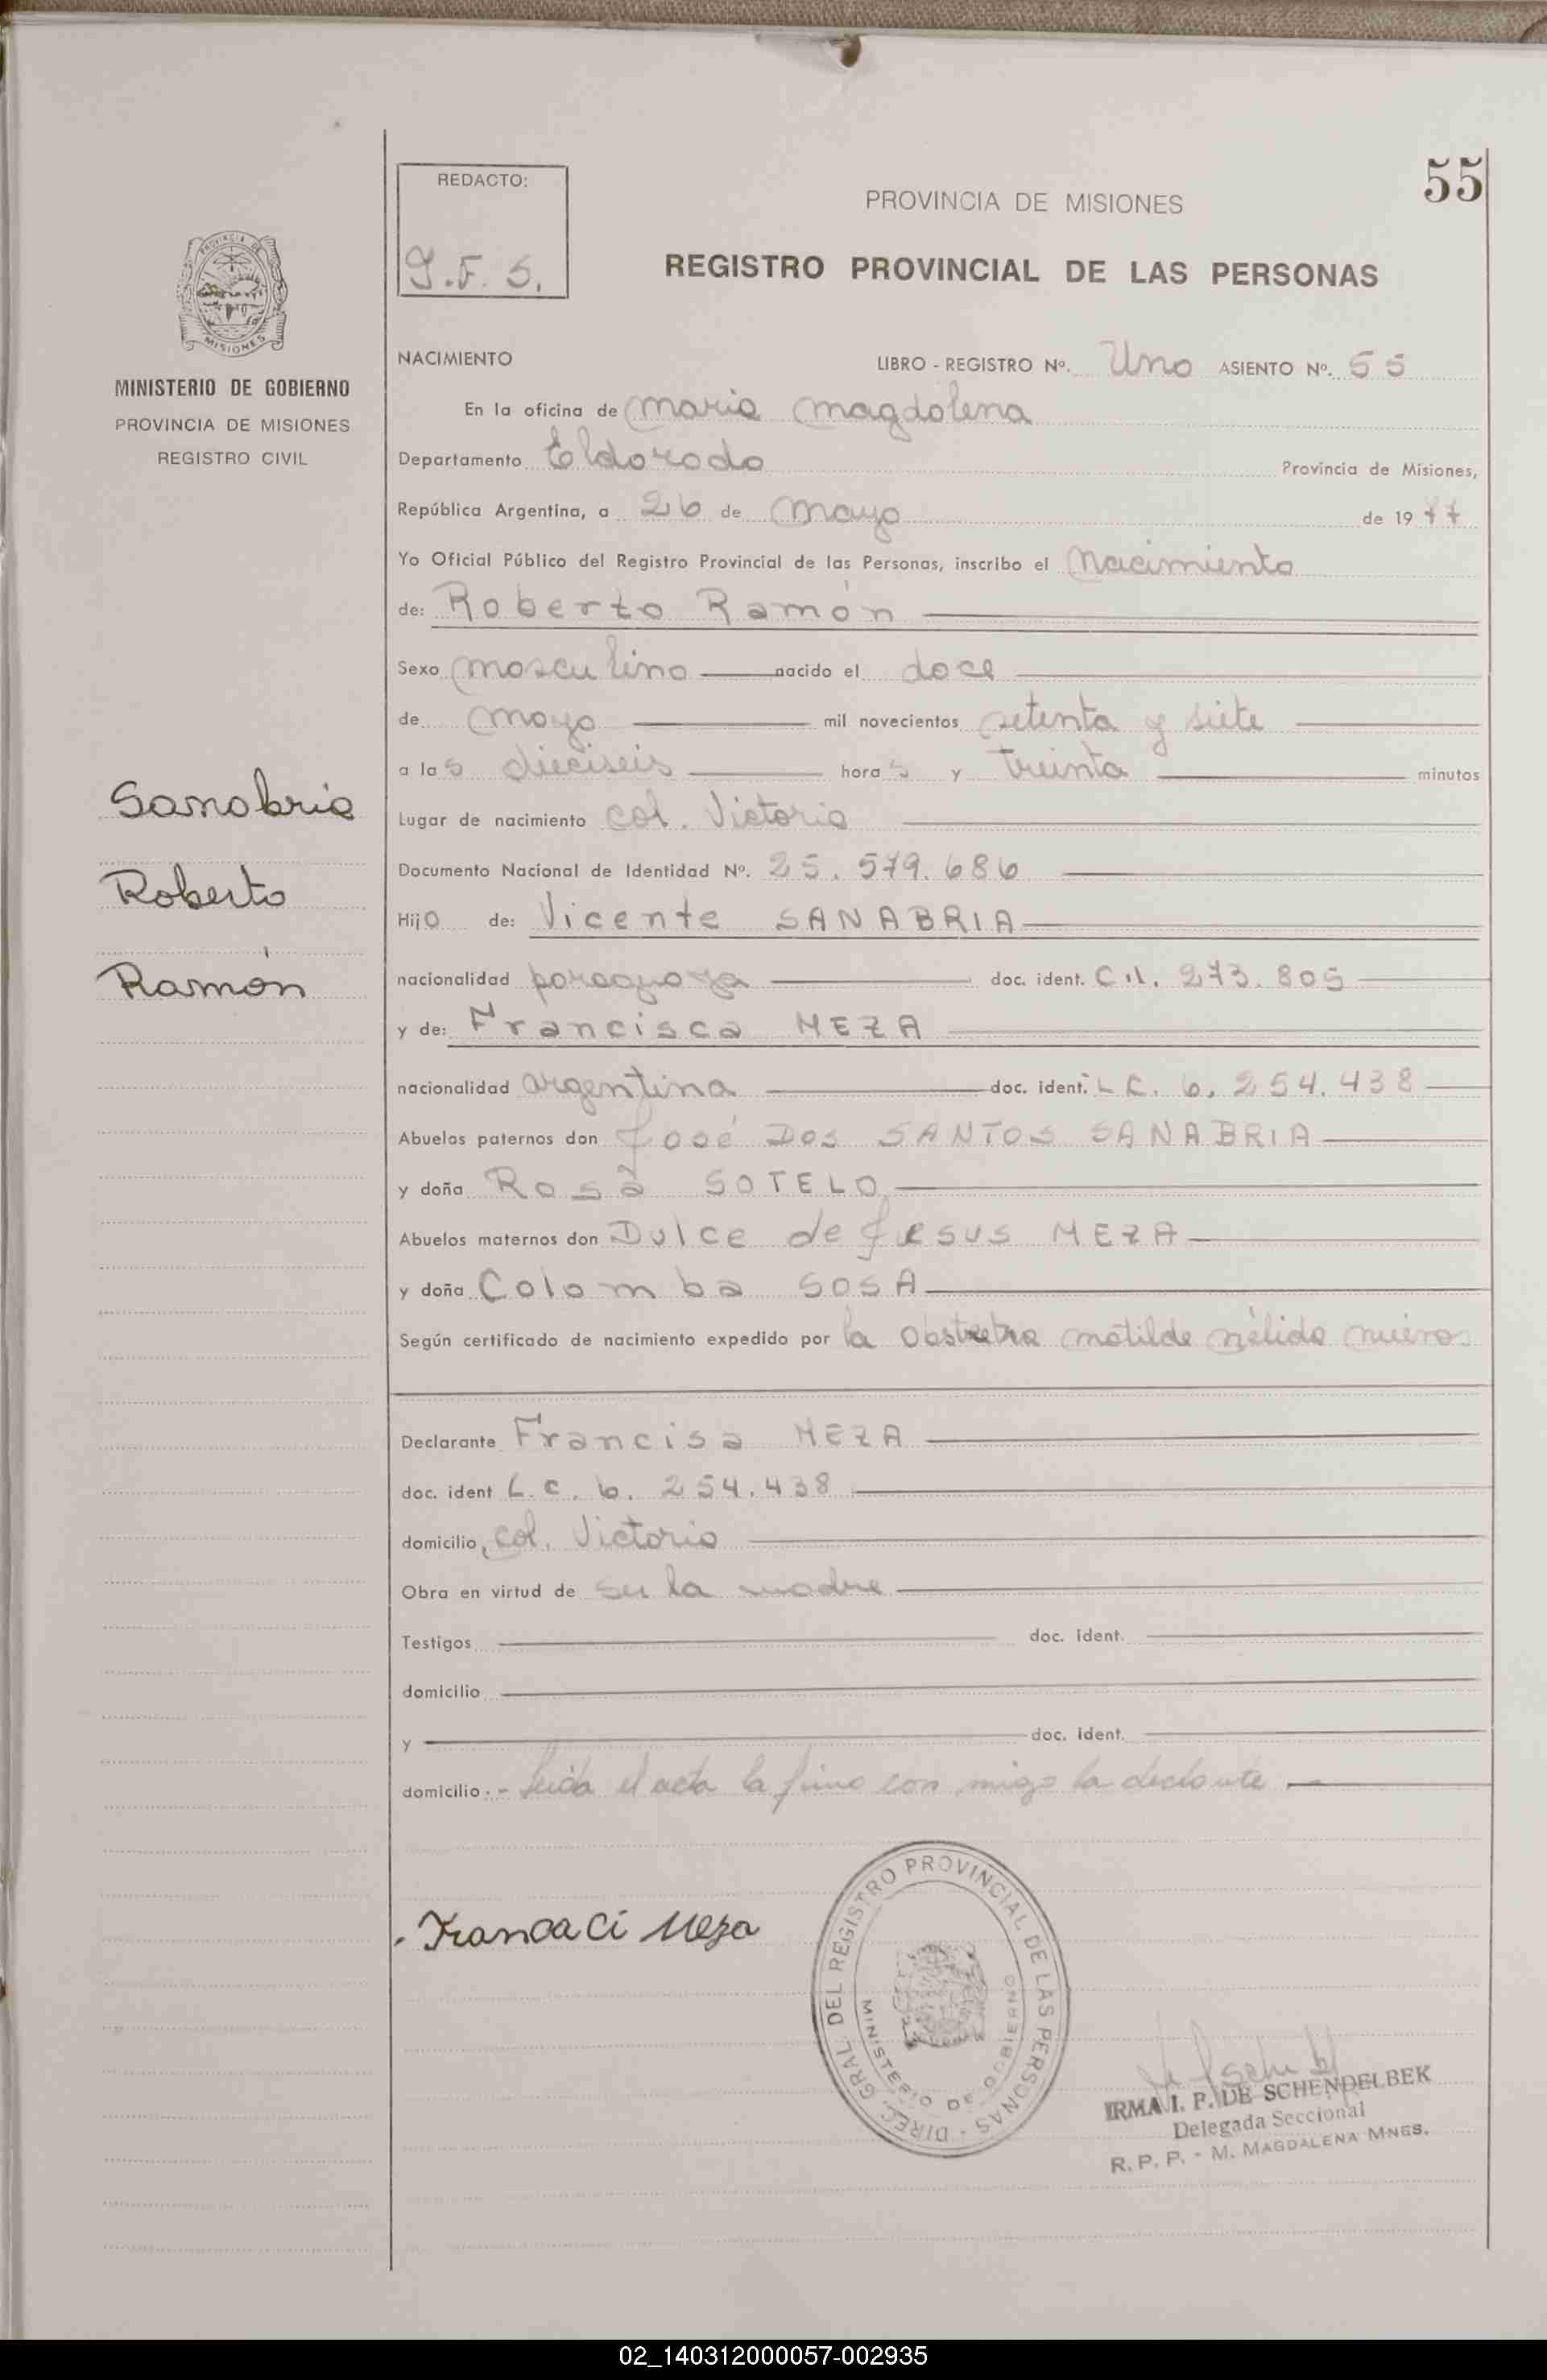 55
REDACTO:
J.F.S.
PROVINCIA DE MISIONES
REGISTRO PROVINCIAL DE LAS PERSONAS
PROVINCIA DE
MISIONES
MINISTERIO DE GOBIERNO
PROVINCIA DE MISIONES
REGISTRO CIVIL
Sanabria
Roberto
Ramón
NACIMIENTO LIBRO - REGISTRO Nº. Uno ASIENTO Nº. 55
En la oficina de maria magdalena
Departamento Eldorado Provincia de Misiones,
República Argentina, a 26 de mayo de 1977
Yo Oficial Público del Registro Provincial de las Personas, inscribo el Nacimiento
de: Roberto Ramón
Sexo masculino nacido el doce
de mayo mil novecientos setenta y siete
a las dieciseis horas y treinta minutos
Lugar de nacimiento col. Victoria
Documento Nacional de Identidad Nº. 25.579.686
Hijo de: Vicente SANABRIA
nacionalidad paraguaya doc. ident. C.I. 273.805
y de: Francisca MEZA
nacionalidad argentina doc. ident. L C. 6.254.438
Abuelos paternos don José Dos SANTOS SANABRIA
y doña Rosa SOTELO
Abuelos maternos don Dulce de Jesus MEZA
y doña Colomba SOSA
Según certificado de nacimiento expedido por la Obstetra matilde nélida
Declarante Francisa MEZA
doc. ident L.C. 6.254.438
domicilio, col. Victoria
Obra en virtud de ser la madre
Testigos doc. ident.
domicilio
y doc. ident.
domicilio.- Leida el acta la firma con migo la
Meza
DIREC. GRAL. DEL REGISTRO PROVINCIAL DE LAS PERSONAS -
MINISTERIO DE GOBIERNO
IRMA I. P. DE SCHENDELBEK
Delegada Seccional
R. P. P. - M. MAGDALENA MNES.
02_140312000057-002935